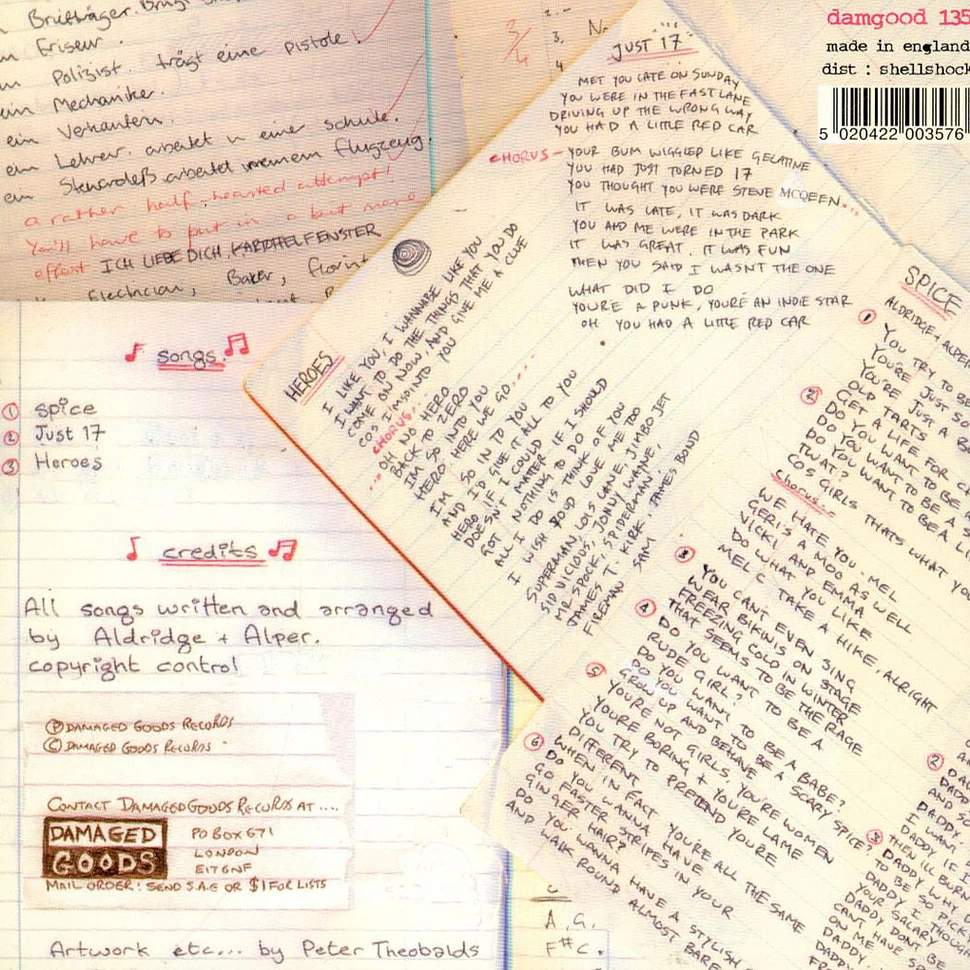 Briefträger.
Friseur.
Polizist. trägt eine Pistole.
ein Mechaniker.
ein Verkäufern.
ein Lehrer. arbeitet in einer schule.
ein Stewardeß arbeitet in einem flugzeug.
a rather half-hearted attempt!
You'll have to put in a bit more
effort ICH LIEBE DICH KARTOFFELFENSTER
Electrician, Baker, florist
3/4
2.
3. N
4
damgood 135
made in england
dist : shellshock
5 020422 003576
JUST "17"
MET YOU LATE ON SUNDAY
YOU WERE IN THE FAST LANE
DRIVING UP THE WRONG WAY
YOU HAD A LITTLE RED CAR
CHORUS - YOUR BUM WIGGLED LIKE GELATINE
YOU HAD JUST TURNED 17
YOU THOUGHT YOU WERE STEVE MCQUEEN...
IT WAS LATE, IT WAS DARK
YOU AND ME WERE IN THE PARK
IT WAS GREAT, IT WAS FUN
THEN YOU SAID I WASN'T THE ONE
WHAT DID I DO
YOU'RE A PUNK, YOU'RE AN INDIE STAR
OH YOU HAD A LITTLE RED CAR
HEROES
I LIKE YOU, I WANNABE LIKE YOU
I WANT TO DO THE THINGS THAT YOU DO
COME ON NOW, AND GIVE ME A CLUE
COS I'M SO INTO YOU
CHORUS..
OH NO HERO
BACK TO ZERO
IM SO INTO YOU
HERO HERE WE GO...
I'M SO IN TO YOU
AND I'D GIVE IT ALL TO YOU
HERO IF I COULD
DOESN'T MATTER IF I SHOULD
GOT NOTHING TO DO
ALL I DO IS THINK OF YOU
I WISH YOU'D LOVE ME TOO
SUPERMAN, LOIS LANE, JIMBO JET
SID VICIOUS, JONNY WAYNE,
MR SPOCK, SPIDERMAN
JAMES T. KIRK, JAMES BOND
FIREMAN SAM
SPICE
ALDRIDGE + ALPER
① YOU TRY TO BE
YOU'RE JUST SO
YOU'RE JUST A BO
OLD TARTS
② GET A LIFE FOR C
DO YOU WANT TO BE A
DO YOU WANT TO BE A S
DO YOU WANT TO BE A LI
TWAT?
COS GIRLS THATS WHAT YO
Chorus...
WE HATE YOU. MEL
GERI'S A MOO AS WELL
VICKI AND EMMA
DO WHAT YOU LIKE
MEL C TAKE A HIKE, ALRIGHT
③ YOU CAN'T EVEN SING
WEAR BIKINIS ON STAGE
FREEZING COLD IN WINTER
THAT SEEMS TO BE THE RAGE
④ DO YOU WANT TO BE A
RUDE GIRL?
DO YOU WANT TO BE A BABE?
DO YOU WANT TO BE A SCARY SPICE?
GROW UP AND BEHAVE
⑤ YOU'RE NOT GIRLS, YOU'RE WOMEN
YOU'RE BORING + YOU'RE LAME
YOU TRY TO PRETEND YOU'RE
DIFFERENT
WHEN IN FACT YOU'RE ALL THE SAME
⑥ DO YOU WANNA HAVE
GO FASTER STRIPES IN YOUR
GINGER HAIR?
DO YOU WANNA HAVE A STYLISH
AND WALK ROUND ALMOST BARE
②
DADDY
AND SO
DADDY
I WANT
DADDY IF I
THEN I'LL BURN
③ DADDY WHY
TO BE SO PICK
DADDY I THOUG
YOUR SALARY
DADDY DON'T BE
CAN'T HAVE
ON ME
DADDY...
songs
① Spice
② Just 17
③ Heroes
credits
All songs written and arranged
by Aldridge + Alper.
copyright control
Ⓟ DAMAGED GOODS RECORDS
Ⓒ DAMAGED GOODS RECORDS
CONTACT DAMAGED GOODS RECORDS AT ....
DAMAGED
GOODS
PO BOX 671
LONDON
E17 6NF
MAIL ORDER: SEND S.A.E OR $1 FOR LISTS
Artwork etc... by Peter Theobalds
A, G,
F#C.